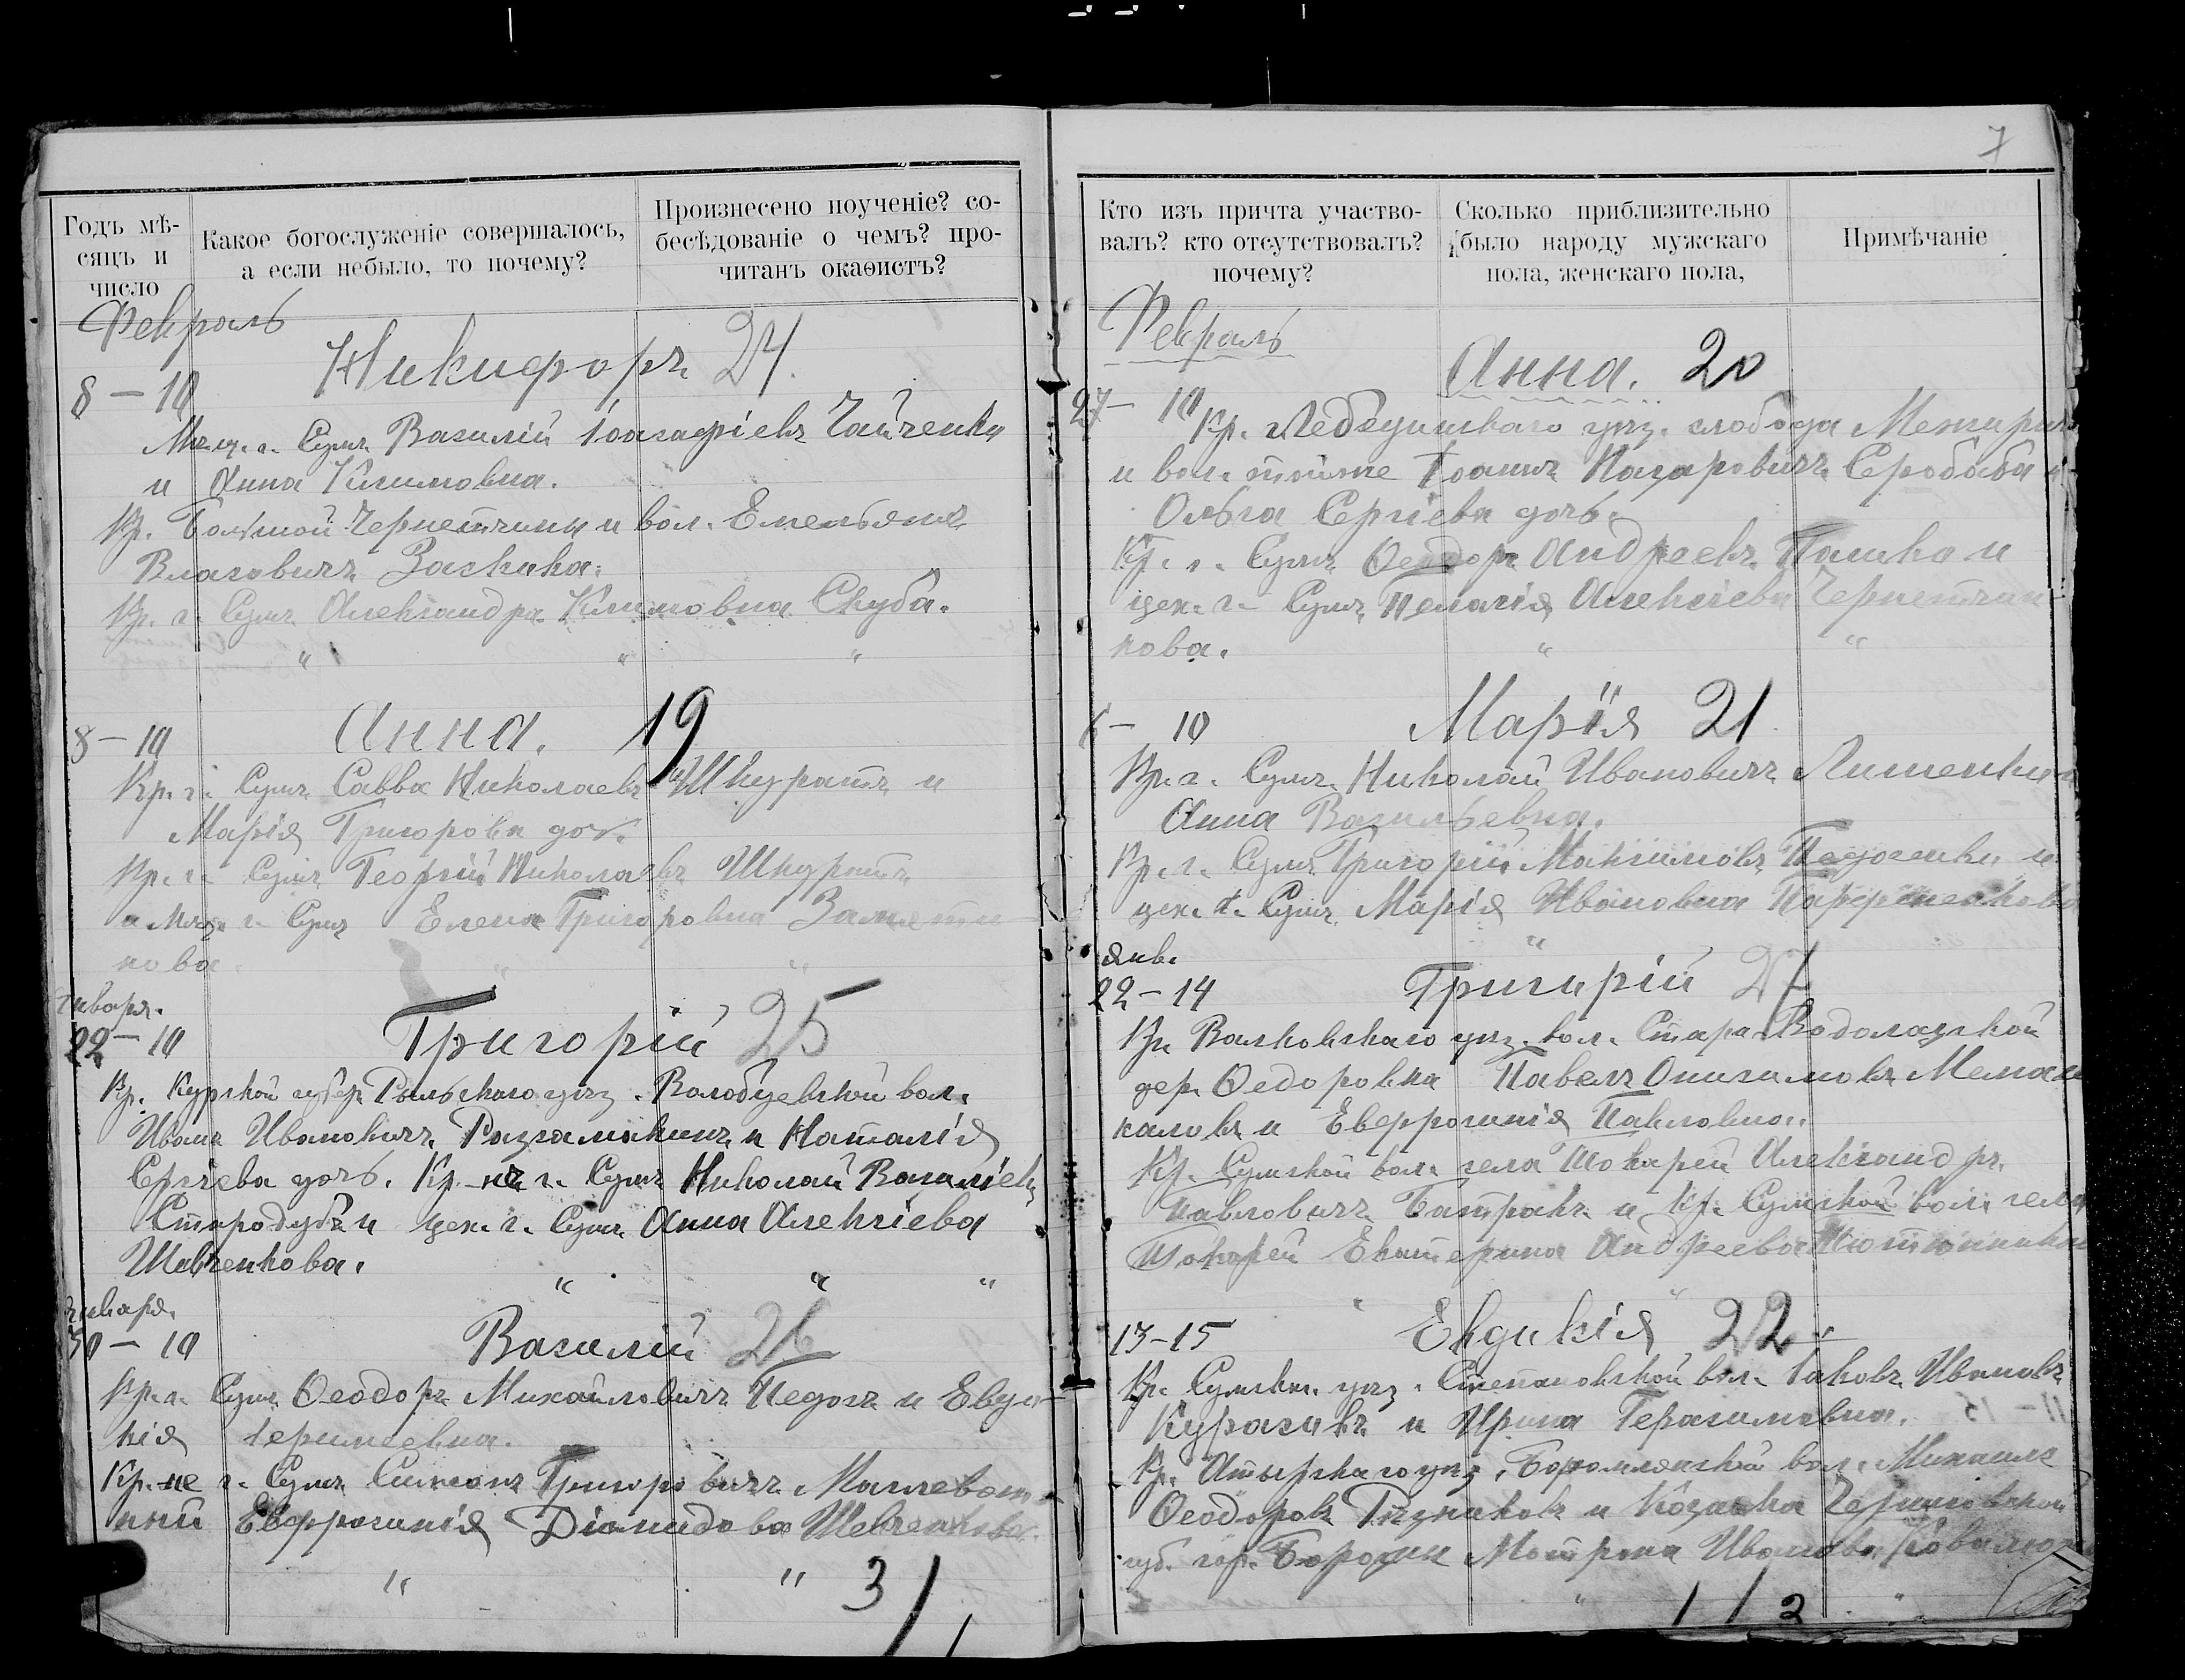 7
Годъ мѣ-
сяцъ и
число
Какое богослуженіе совершалось,
а если небыло, то почему?
Произнесено поученіе? со-
бесѣдованіе о чемъ? про-
читанъ окаѳистъ?
Февраль
Никифоръ 24.
8 – 10
Мещ. г. Сумъ Василій Іоасафіевъ Чайченко
и Анна Климовна.
Кр. Большой Чернетчины и вол. Емельянъ
Власовичъ Заскока.
Кр. г. Сумъ Александра Климовна Скуба.
" " "
8 – 10 Анна. 19
Кр. г. Сумъ Савва Николаевъ Шкуратъ и
Марія Григорова доч.
Кр. г. Сумъ Георгій Николаевъ Шкуратъ
и мѣщ. г. Сумъ Елена Григоровна
нова. " "
Января.
22 – 10 Григорій 25
Кр. Курской губер. Рыльскаго уѣз. вол.
Иванъ Ивановичъ и Наталія
Сергіева дочь. Кр-нъ г. Сумъ Николай Василіевъ
Стародубъ и цех. г. Сумъ Анна Алексіева
Шевченкова.
" " "
Января.
30 – 10 Василій 26
Кр. г. Сумъ Ѳеодоръ Михайловичъ Педосъ и Евдо-
кія Іереміевна.
Кр-не г. Сумъ Симеонъ Григоровичъ
Евфросинія Діомидова Шевченкова.
" " 3/1
Кто изъ причта участво-
валъ? кто отсутствовалъ?
почему?
Сколько приблизительно
было народу мужскаго
пола, женскаго пола,
Примѣчаніе
Февраль
Анна. 20
27 – 10
Кр. Лебединскаго уѣз. слобода
и вол. тойже Іоаннъ Назаровичъ Серобаба и
Ольга Сергіева дочь.
Кр. г. Сумъ Ѳеодоръ Андреевъ и
цех. г. Сумъ Пелагія Алексіева Чернетчен
кова. " "
– 10 Марія 21
Кр. г. Сумъ Николай Ивановичъ
Анна Васильевна.
Кр. г. Сумъ Григорій Максимовъ и
цех. г. Сумъ Марія Ивановна
"
Янв.
22 – 14 Григорій 27
Кр. Валковскаго уѣз. вол. Старо-Водолазской
дер. Ѳедоровка Павелъ Онисимовъ
каловъ и Евфросинія Павловна.
Кр. Сумской вол. села Токарей Александръ
Павловичъ Батракъ и кр. Сумской вол. села
Токарей Екатерина Андреева
" "
13 – 15 Евдокія 22
Кр. Сумск. уѣз. Степановской вол. Іаковъ Ивановъ
Курасовъ и Ирина Герасимовна.
Кр. Ахтырскаго уѣз. Боромлянской вол. Михаилъ
Ѳеодоровъ и козачка Черниговской
губ. гор. Борозны Мотрона Иванова
" 1/2 "